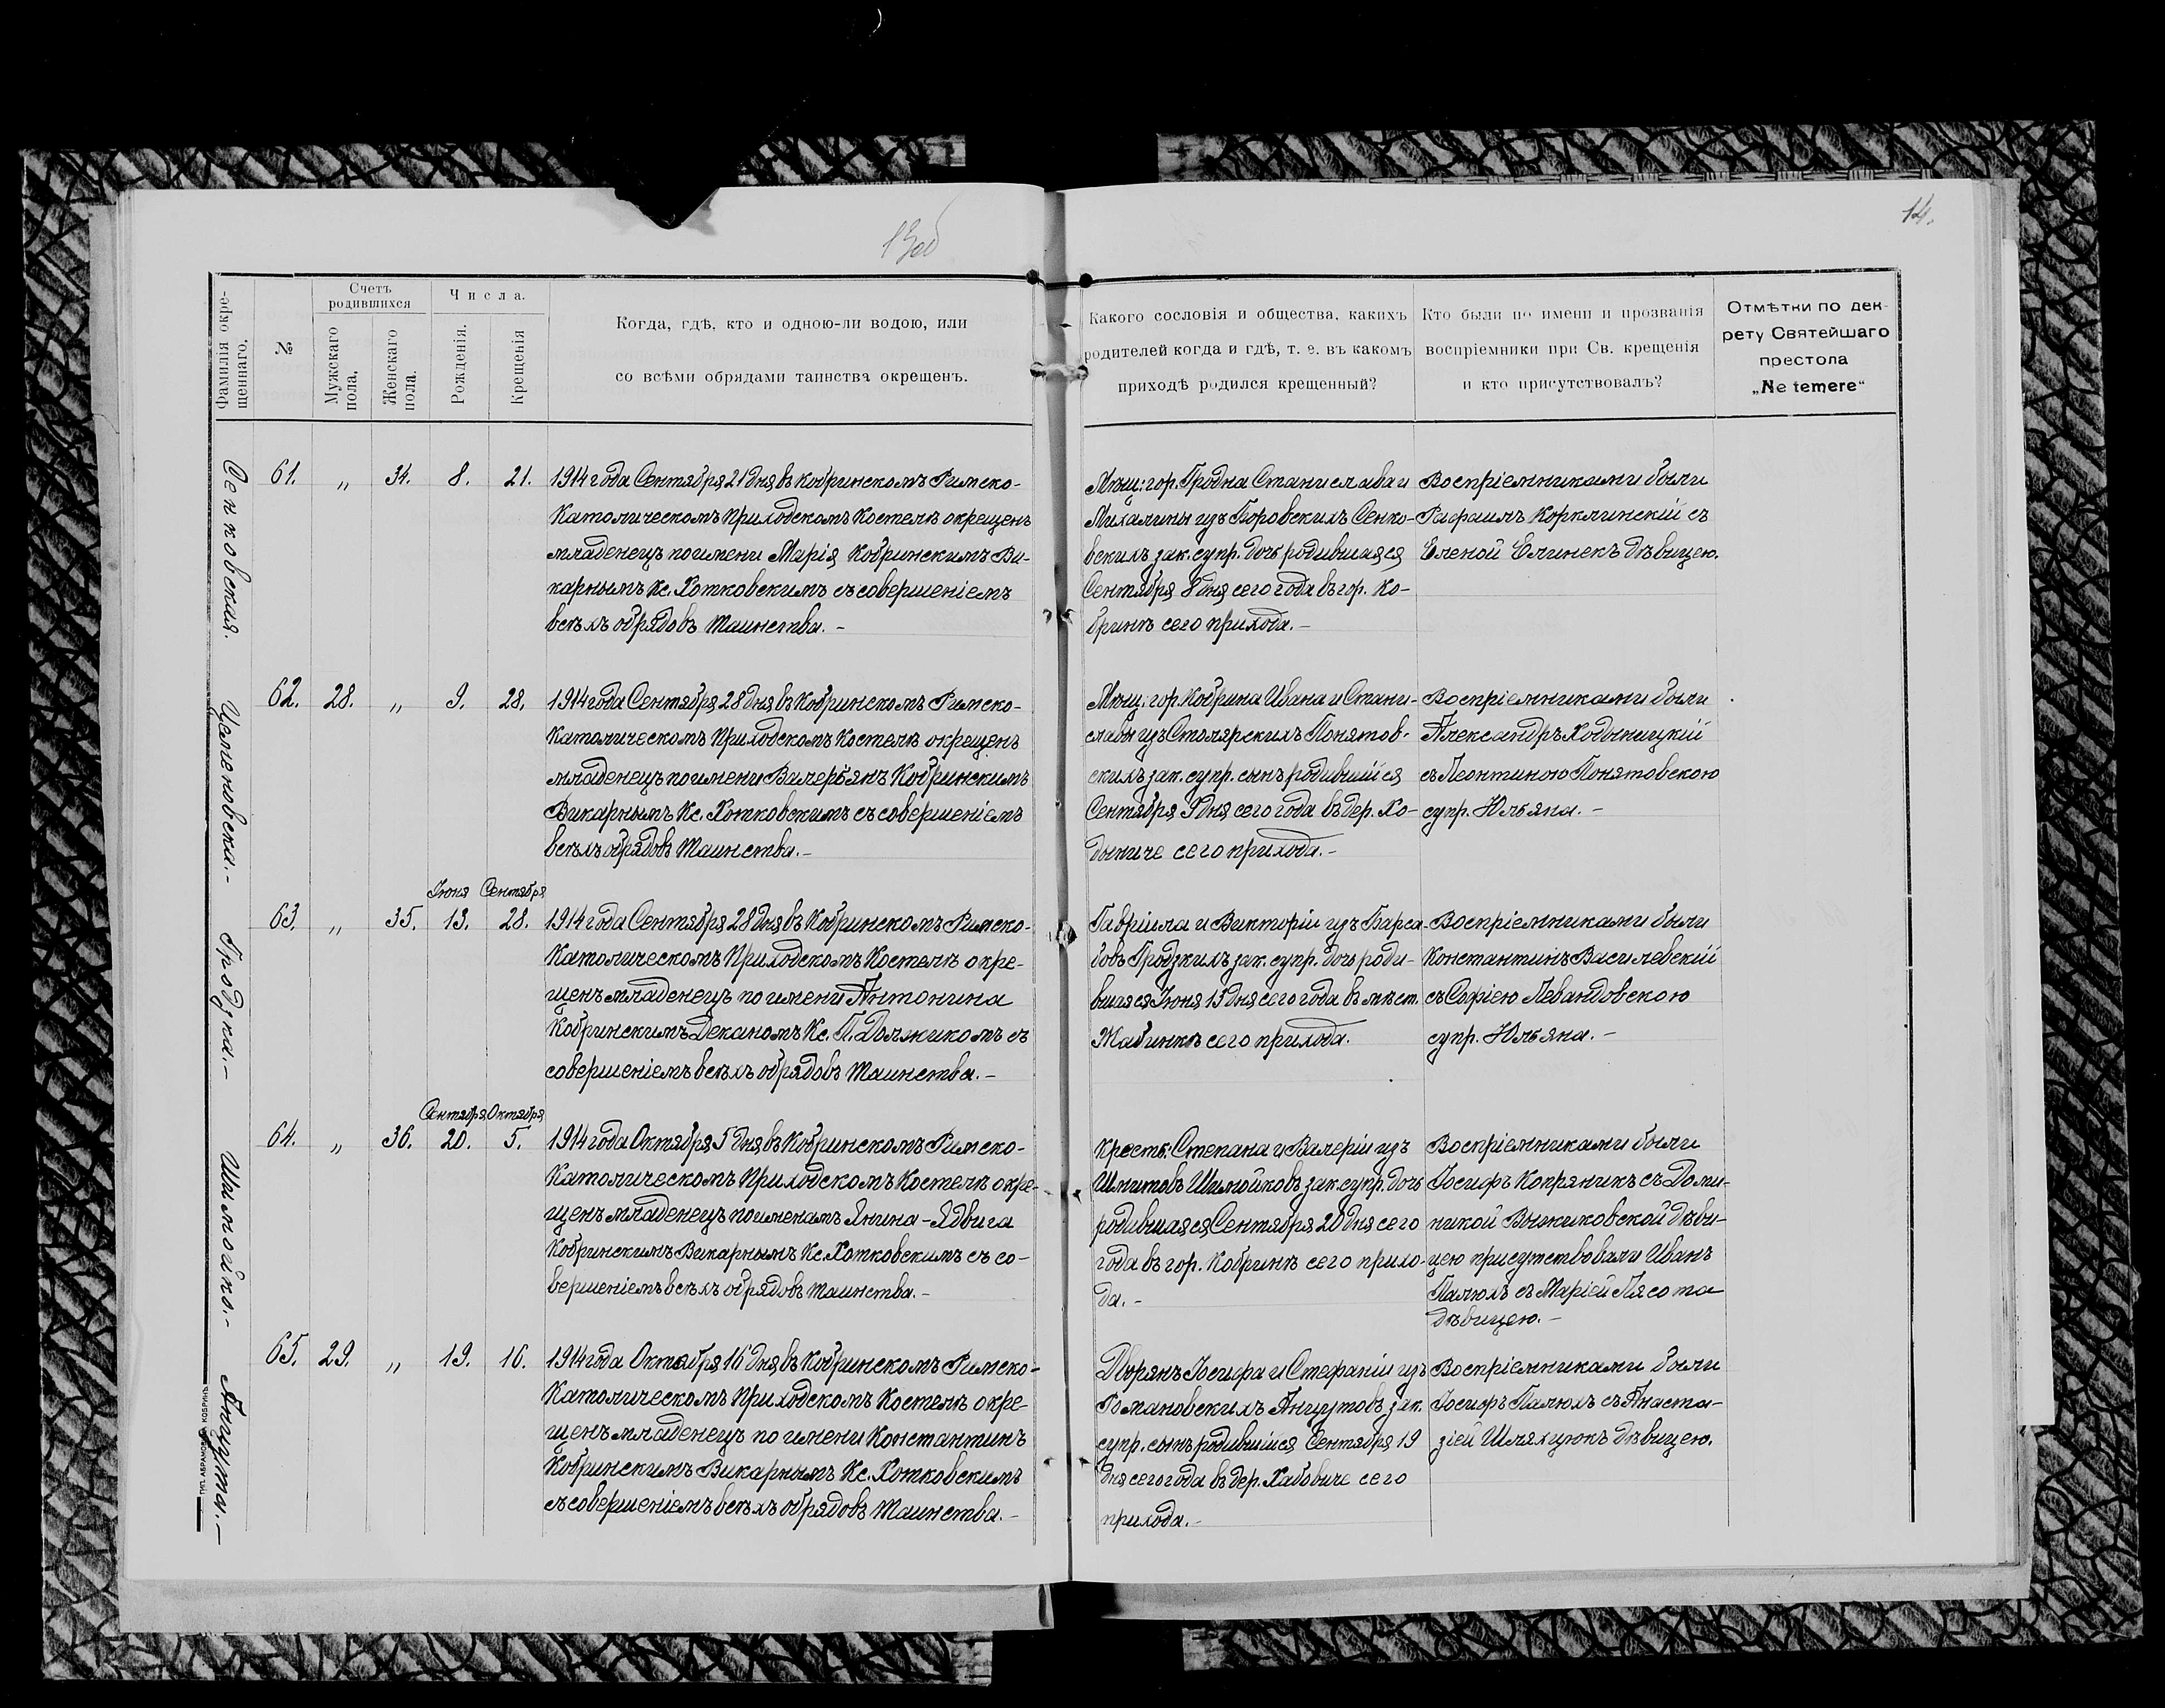 13об
14.
Фамилія окре-
щеннаго.
№
Счетъ
родившихся
Мужскаго
пола.
Женскаго
пола.
Числа.
Рожденія.
Крещенія
Когда, гдѣ, кто и одною-ли водою, или
со всѣми обрядами таинства окрещенъ.
Какого сословія и общества, какихъ
родителей когда и гдѣ, т. е. въ какомъ
приходѣ родился крещенный?
Кто были по имени и прозванія
воспріемники при Св. крещенія
и кто присутствовалъ?
Отмѣтки по дек-
рету Святейшаго
престола
„Ne temere“
Сенковская.
61. „ 34. 8. 21.
1914 года Сентября 21 дня въ Кобринскомъ Римско-
Католическомъ Приходскомъ Костелѣ окрещенъ
младенецъ по имени Марія Кобринскимъ Ви-
карнымъ Кс. Хотковскимъ съ совершеніемъ
всѣхъ обрядовъ Таинства. –
Мѣщ: гор. Гродна Станислава и
Михалины изъ Боровскихъ Сенко-
вскихъ зак. супр. дочь родившаяся
Сентября 8 дня сего года въ гор. Ко-
бринѣ сего прихода. –
Воспріемниками были
Рафаилъ Корклинскій съ
Еленой Елинекъ дѣвицею.
62. 28. „ 9. 28.
1914 года Сентября 28 дня въ Кобринскомъ Римско-
Католическомъ Приходскомъ Костелѣ окрещенъ
младенецъ по имени Валерьянъ Кобринскимъ
Викарнымъ Кс. Хотковскимъ съ совершеніемъ
всѣхъ обрядовъ Таинства. –
Мѣщ: гор. Кобрина Ивана и Стани-
славы изъ Столярскихъ Понятов-
скихъ зак. супр. сынъ родившійся
Сентября 9 дня сего года въ дер. Хо-
дыниче сего прихода. –
Воспріемниками были
Александръ Ходыницкій
съ Леонтиною Понятовскою
супр. Юльяна. –
Гродзка. –
Іюня Сентября
63. „ 35. 13. 28.
1914 года Сентября 28 дня въ Кобринскомъ Римско-
Католическомъ Приходскомъ Костелѣ окре-
щенъ младенецъ по имени Антонина
Кобринскимъ Деканомъ Кс. П. Должикомъ съ
совершеніемъ всѣхъ обрядовъ Таинства. –
Гавріила и Викторіи изъ Барса-
бовъ Гродзкихъ зак. супр. дочь роди-
вшаяся Іюня 13 дня сего года въ мѣст.
Жабинкѣ сего прихода.
Воспріемниками были
Константинъ Василевскій
съ Софіею Левандовскою
супр. Юльяна. –
Шимойко. –
Сентября Октября
64. „ 36. 20. 5.
1914 года Октября 5 дня въ Кобринскомъ Римско-
Католическомъ Приходскомъ Костелѣ окре-
щенъ младенецъ по именамъ Янина-Ядвига
Кобринскимъ Викарнымъ Кс. Хотковскимъ съ со-
вершеніемъ всѣхъ обрядовъ таинства. –
Крест: Степана и Валеріи изъ
Шмитовъ Шимойковъ зак. супр. дочь
родившаяся Сентября 20 дня сего
года въ гор. Кобринѣ сего прихо-
да. –
Воспріемниками были
Іосифъ Копряникъ съ Доми-
никой Вынжиковской дѣви-
цею присутствовали Иванъ
Палюхъ съ Маріей Лясота
дѣвицею. –
Анцута. –
65. 29. „ 19. 16.
1914 года Октября 16 дня въ Кобринскомъ Римско-
Католическомъ Приходскомъ Костелѣ окре-
щенъ младенецъ по имени Константинъ
Кобринскимъ Викарнымъ Кс. Хотковскимъ
съ совершеніемъ всѣхъ обрядовъ Таинства. –
Дворянъ Іосифа и Стефаніи изъ
Романовскихъ Анцутовъ зак.
супр. сынъ родившійся Сентября 19
дня сего года въ дер. Хабовиче сего
прихода. –
Воспріемниками были
Іосифъ Палюхъ съ Анаста-
зіей Шляхцюкъ дѣвицею.